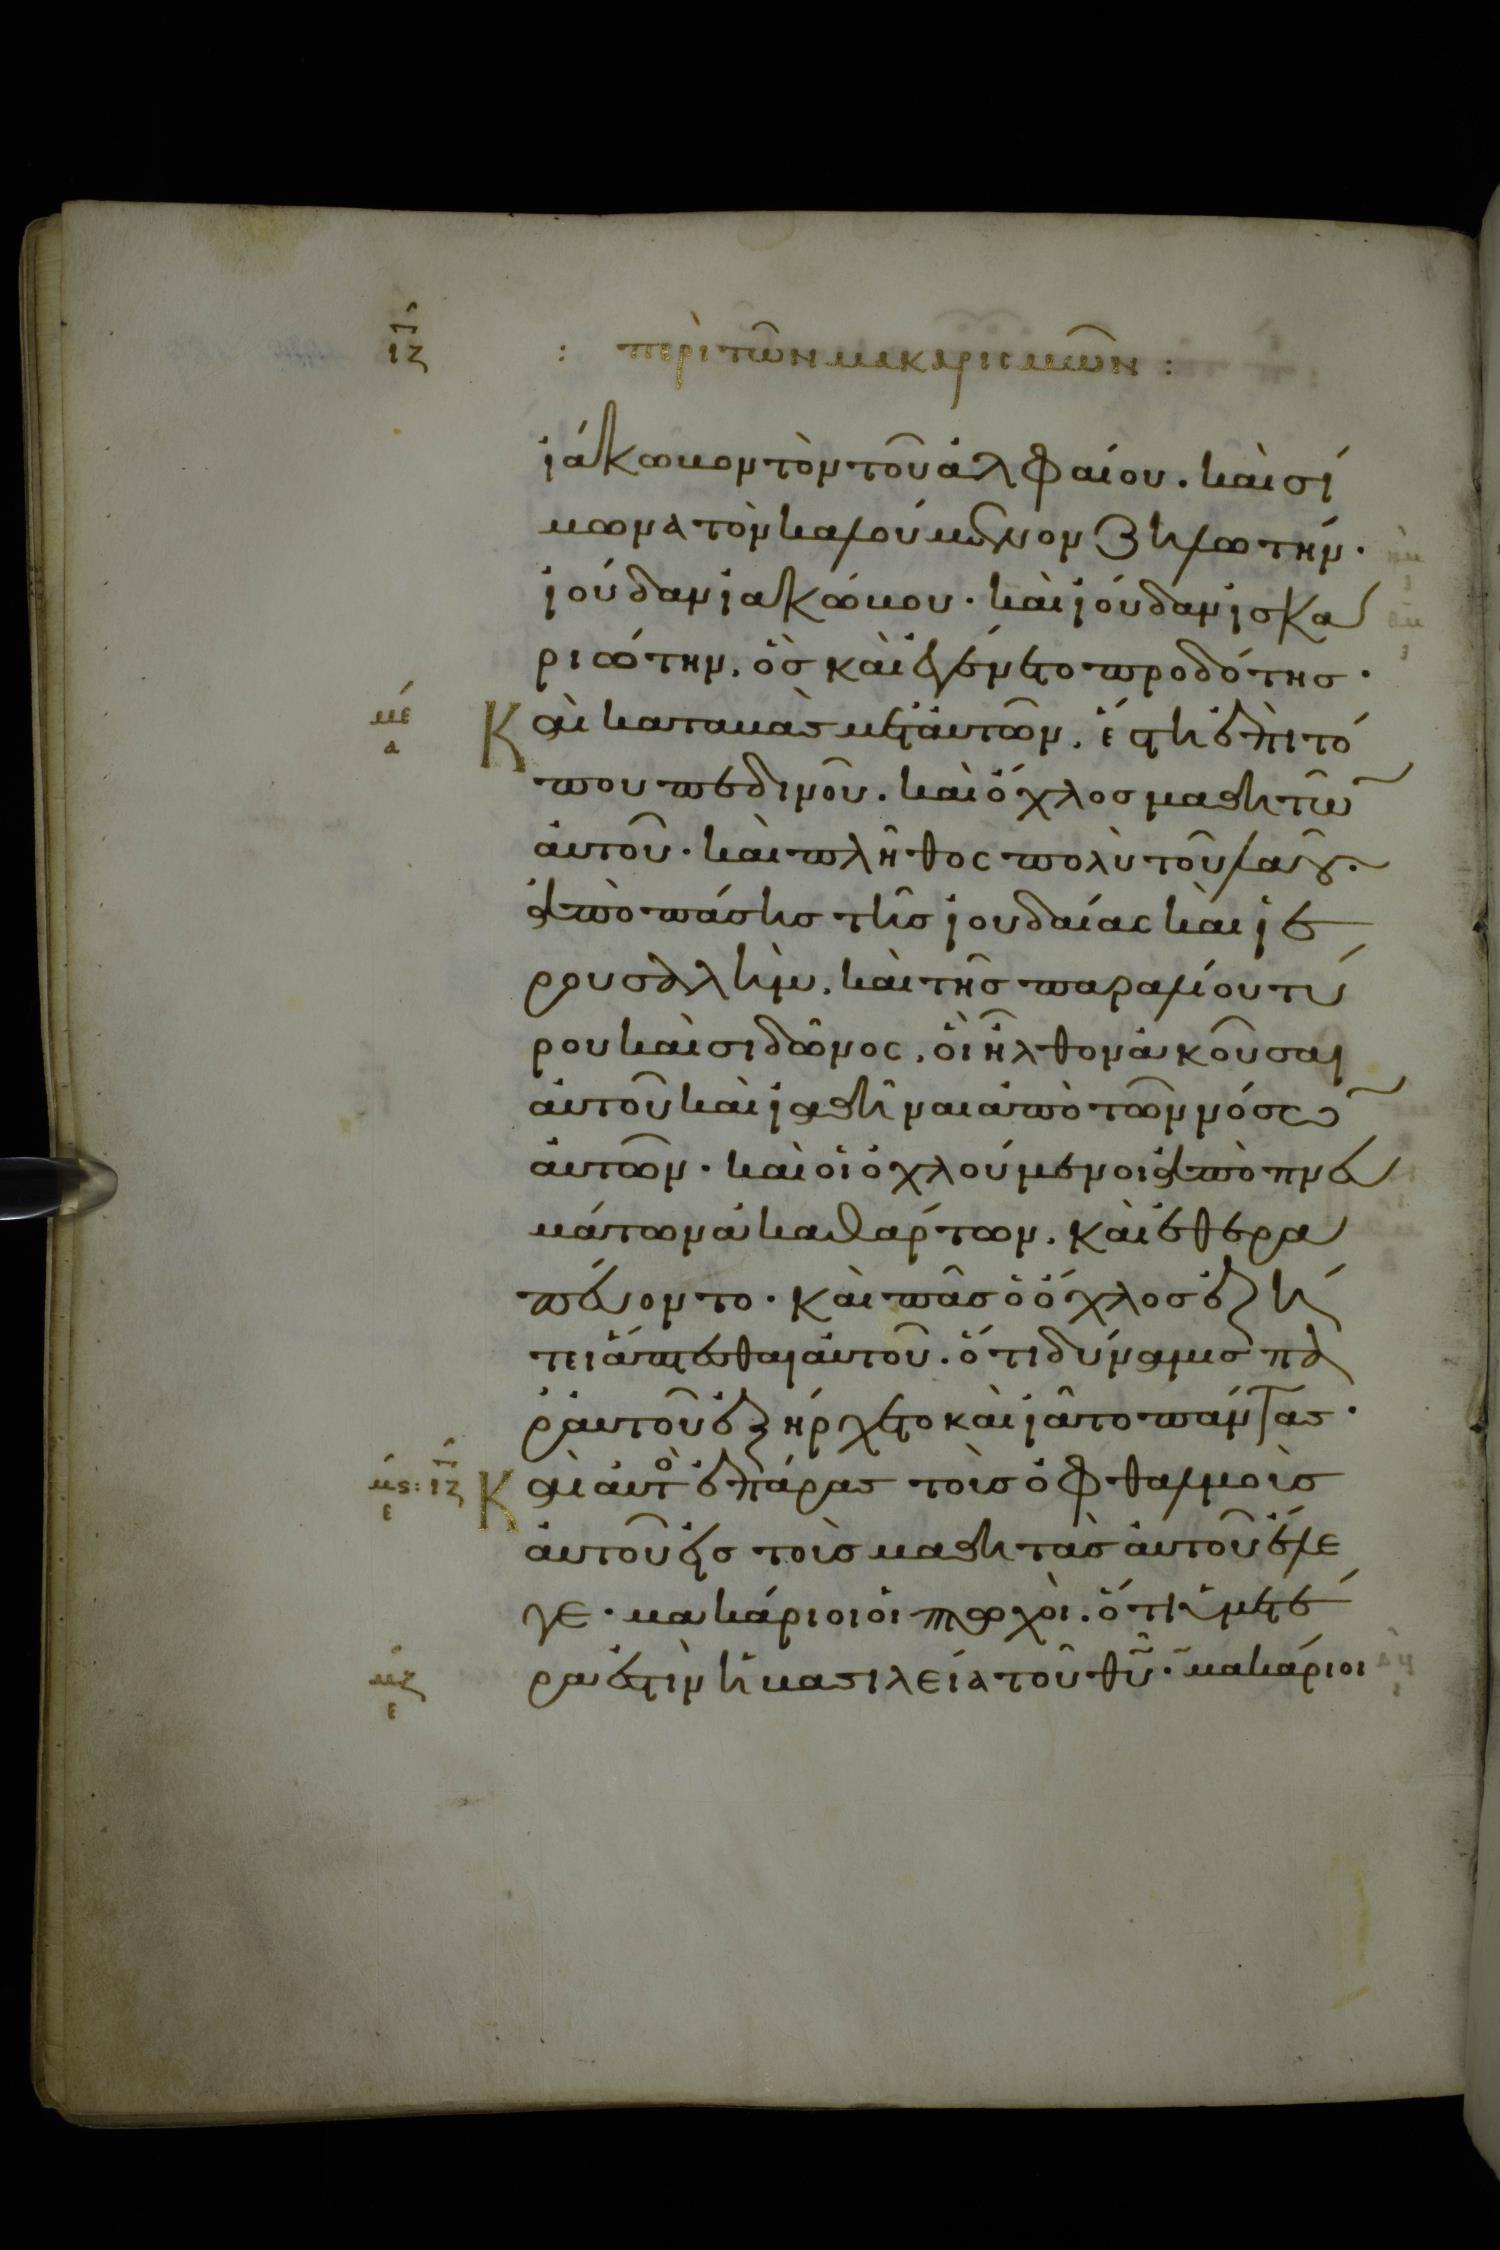 ιζ : περὶ τῶν μακαρισμῶν :
ἰάκωβον τὸν τοῦ ἀλφαίου. καὶ σί
μωνα τὸν καλούμενον ζηλωτήν.
ἰούδαν ἰακώβου. καὶ ἰούδαν ἰσκα
ριώτην, ὃσ καὶ ἐγένετο προδότησ.
με α Καὶ καταβὰσ μετ' ἀυτῶν, ἔστη ἐπὶ τό
που πεδινοῦ. καὶ ὄχλοσ μαθητῶ
ἀυτοῦ. καὶ πλῆθος πολὺ τοῦ λαοῦ.
ἀπὸ πάσησ τῆσ ἰουδαίας καὶ ἱε
ρουσαλὴμ, καὶ τῆσ παραλίου τύ
ρου καὶ σιδῶνος, ὁὶ ἦλθον ἀκοῦσαι
ἀυτοῦ καὶ ἰαθῆναι ἀπὸ τῶν νόσω
ἀυτῶν. καὶ οἱ ὀχλούμενοι ἀπὸ πνευ
μάτων ἀκαθάρτων. καὶ ἐθερα
πεύοντο. καὶ πᾶσ ὁ ὄχλοσ ἐζή
τει ἅπτεσθαι ἀυτοῦ. ὅτι δύναμισ πα
ρ' ἀυτοῦ ἐξήρχετο καὶ ἰᾶτο πάντασ.
μς: ιζ ε Καὶ ἀυτὸ ἐπάρασ τοὺσ ὀφθαλμοὺσ
ἀυτοῦ εἰσ τοὺσ μαθητὰσ ἀυτοῦ ἔλε
γε. μακάριοι οἱ πτωχοὶ. ὅτι ὑμετέ
μζ ε ρα ἐστὶν ἡ βασιλεία τοῦ θυ. μακάριοι